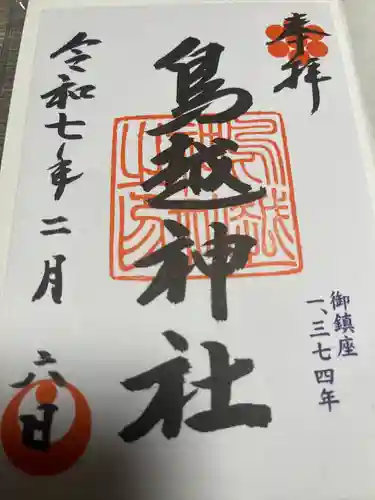 奉拝
御鎮座
一、三七四年
鳥越神社
令和七年二月六日